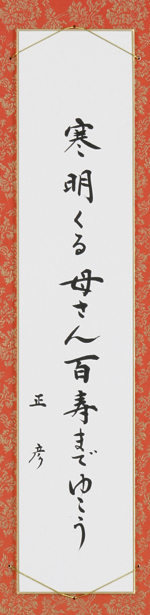 寒明くる母さん百寿までゆこう
正彦